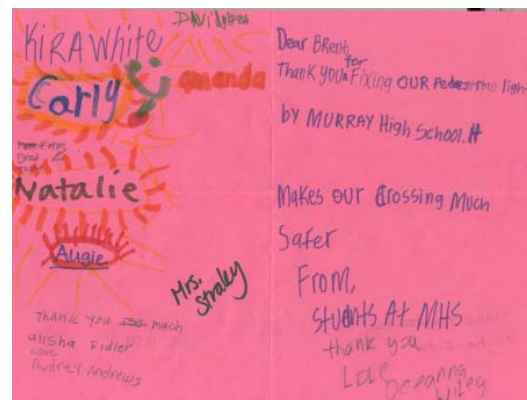 KiRA WHite
Carly
amanda
Natalie
Augie
Mrs. Straley
Thank You so Mach
alisha Fidler
Love
Audrey Andrews
Dear Brent,
Thank You for Fixing OUR Pedestrian light
by MURRAY High School. It
Makes our Crossing Much
Safer
From,
Students At MHS
thank you
Love Deeanna
Wiley